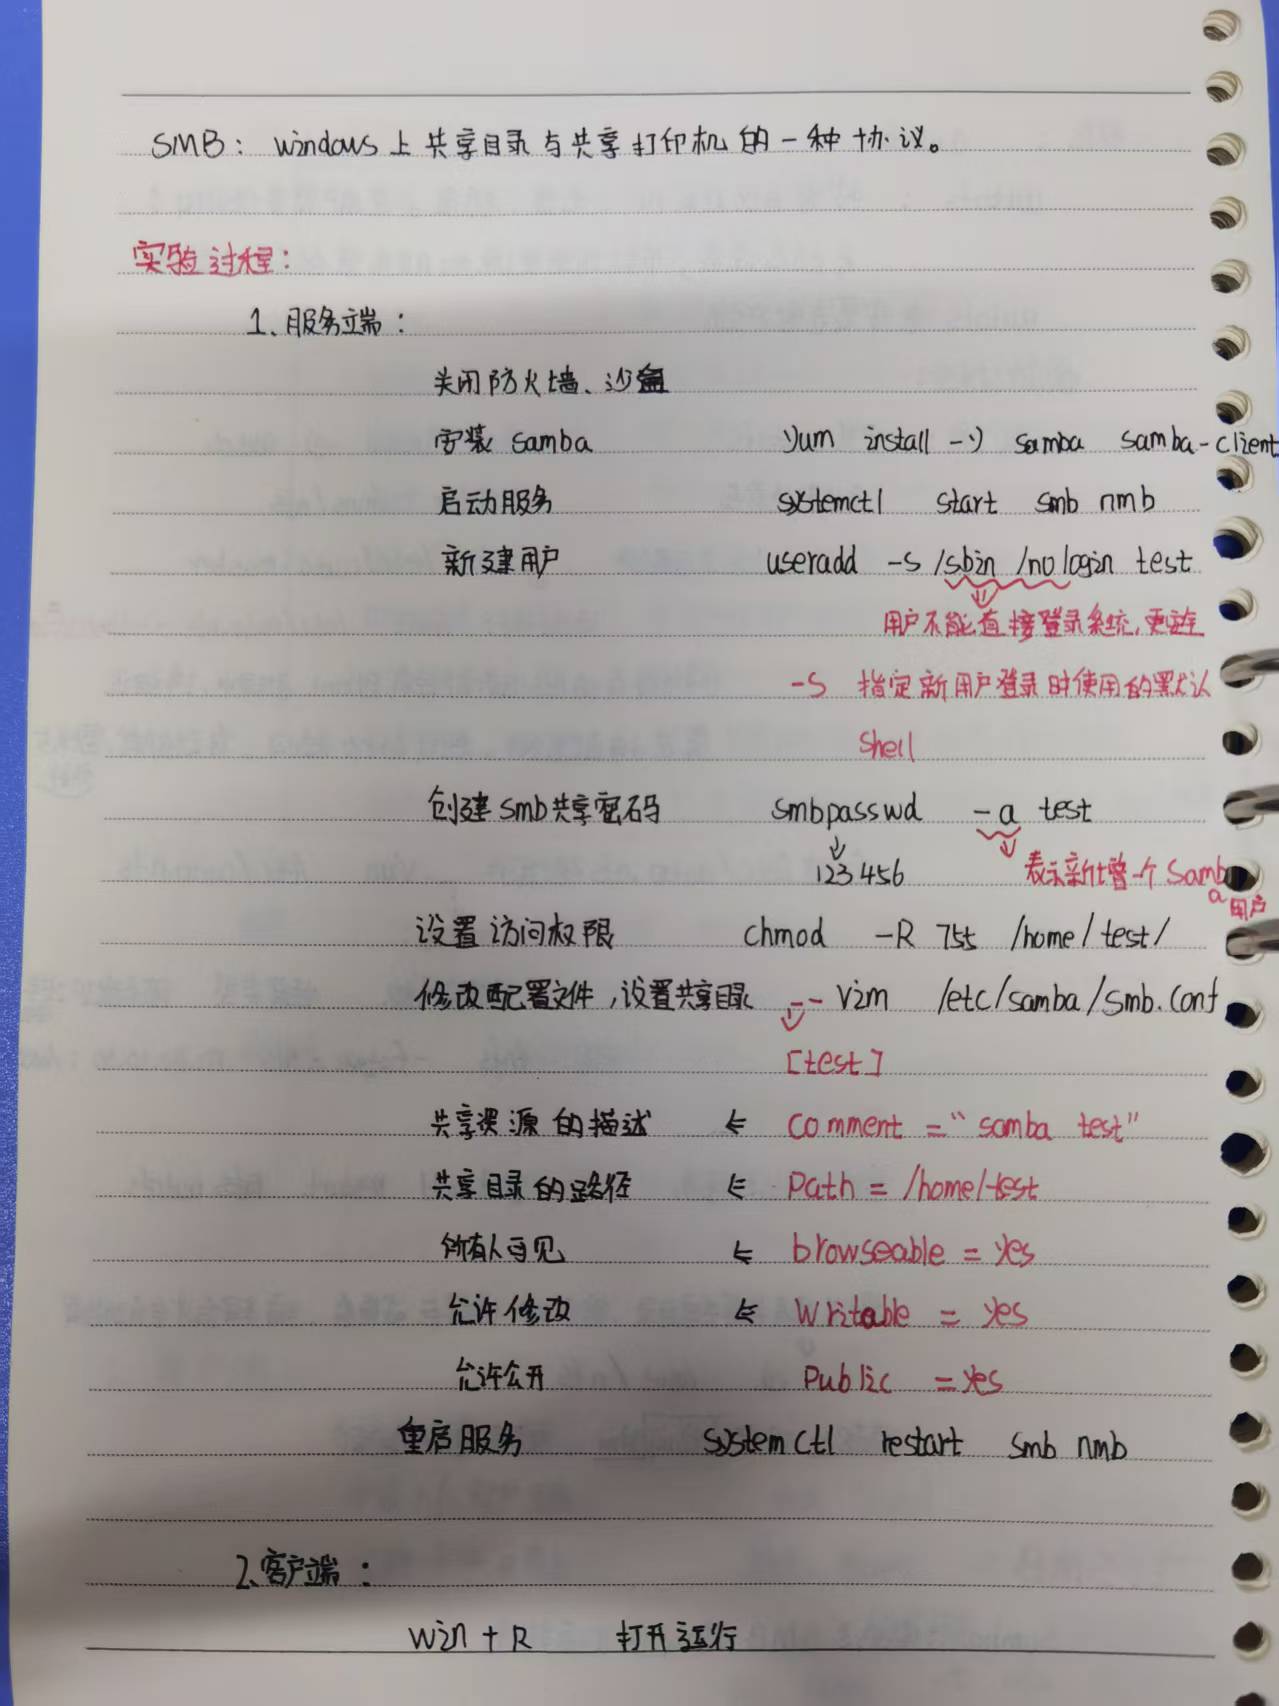 SMB: windows上共享目录与共享打印机的一种协议。
实验过程:
1、服务端:
关闭防火墙、沙盒
安装samba yum install -y samba samba-client
启动服务 systemctl start smb nmb
新建用户 useradd -s /sbin/nologin test
用户不能直接登录系统,更安全
-s 指定新用户登录时使用的默认
shell
创建smb共享密码 smbpasswd -a test
123456 表示新增一个Samba用户
设置访问权限 chmod -R 755 /home/test/
修改配置文件,设置共享目录 -- vim /etc/samba/smb.conf
[test]
共享资源的描述 ⇐ comment = "samba test"
共享目录的路径 ⇐ Path = /home/test
所有人可见 ⇐ browseable = yes
允许修改 ⇐ writable = yes
允许公开 Public = yes
重启服务 systemctl restart smb nmb
2、客户端:
win + R 打开运行